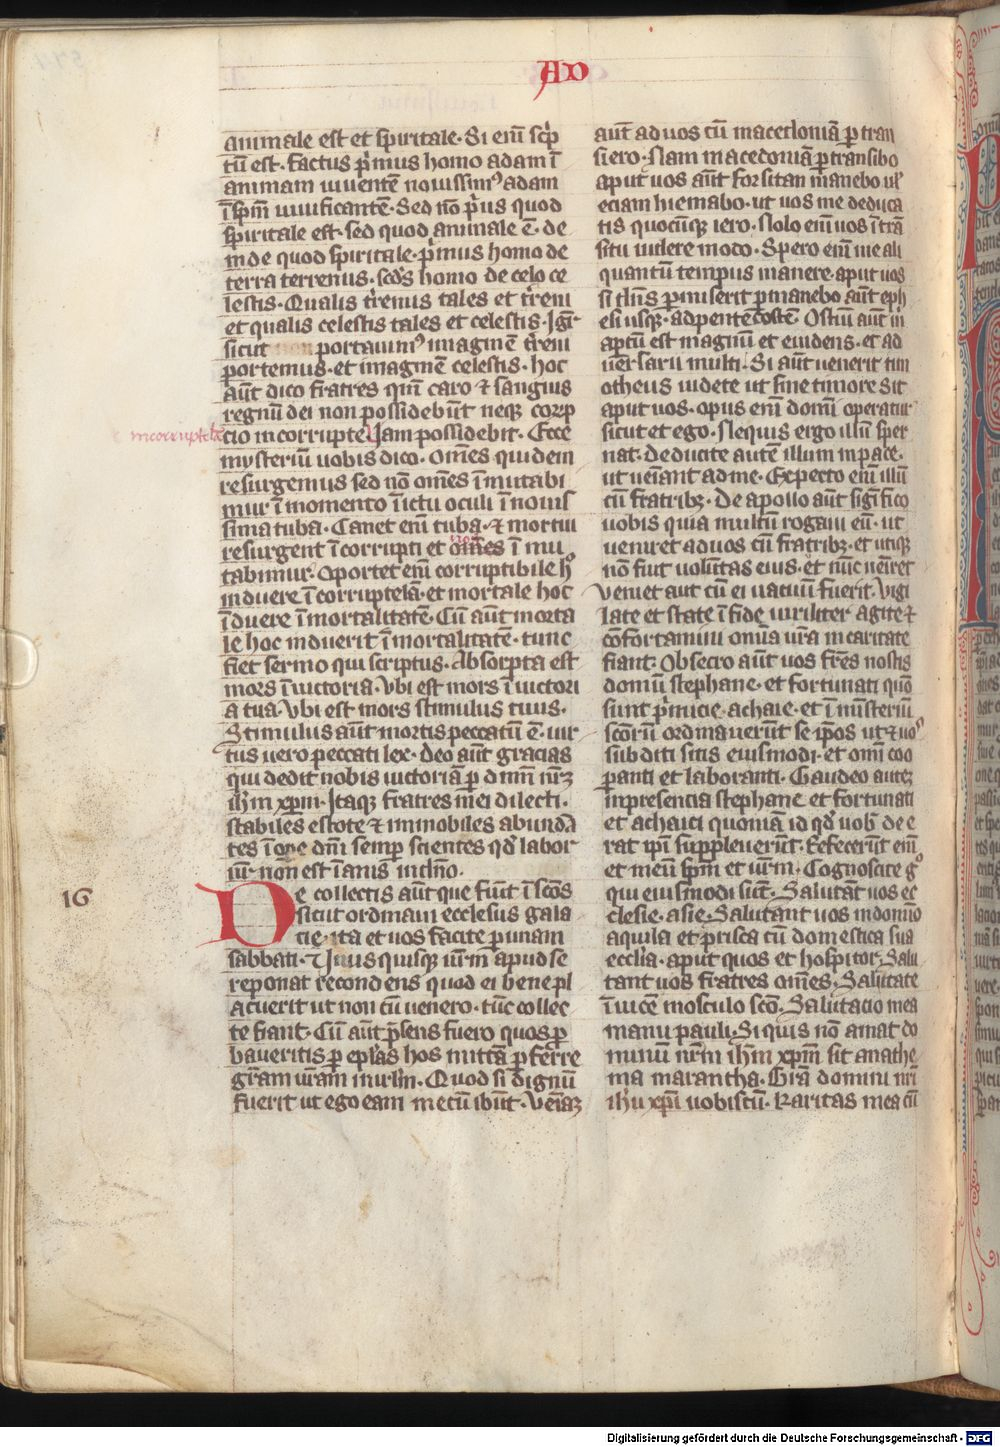 AD
animale est et spiritale. Si eni scp̄
tū est. factus p̄mus homo adam ī
animam uiuentē nouissimꝰ adam
ī spm̄ uiuificantē. Sed nō p̄us quod
spiritale est. sed quod animale ē. de
inde quod spiritale. p̄mus homo de
terra terrenus. scd̄s homo de celo ce
lestis. Qualis tr̄enus tales et tr̄eni
et qualis celestis tales et celestis. Igr̄
sicut portauimꝰ imaginē tr̄eni
portemus. et imaginē celestis. hoc
aūt dico fratres qm̄ caro ⁊ sangius
regnū dei non possidebūt neqꝫ corrp
incorruptelā
cio incorrupte Jam possidebit. Ecce
mysteriū uobis dico. Om̄es quidem
resurgemus sed non om̄es īmutabi
mur ī momento ī ictu oculi ī nouis
sima tuba. Canet eni tuba. ⁊ mortui
resurgent īcorrupti et om̄es īmu
tabimur. Oportet eni corruptibile h̄
induere īcorruptelā. et mortale hoc
īduere īmortalitatē. Cū aūt morta
le hoc induerit īmortalitatē. tunc
fiet sermo qui scriptus. Absorpta est
mors ī uictoria. Vbi est mors ī uictori
a tua. Vbi est mors stimulus tuus.
Stimulus aūt mortis peccatū ē. uir
tus uero peccati lex. deo aūt gracias
qui dedit nobis uictoriā p dnm̄ nr̄ꝫ
ih̄m xp̄m. Itaqꝫ fratres mei dilecti.
stabiles estote ⁊ immobiles abundā
tes ī ope dn̄i semp scientes qd̄ labor
ur̄ non est īanis in dn̄o.
16
De collectis aūt que fiūt ī scōs
sicut ordinaui ecclesiis gala
cie. ita et uos facite p unam
sabbati. Vnus quisqꝫ ur̄m apud se
reponat recondens quod ei bene pl
acuerit ut non cū uenero. tūc collec
te fiant. Cū aūt p̄sens fuero quos p
baueritis p epl̄as hos mittā pferre
gr̄am ur̄am in irl̄m. Quod si dignū
fuerit ut ego eam mecū ibūt. Veniā
aūt ad uos cū macedoniā p tran
siero. Nam macedoniā p transibo
aput uos aūt forsitan manebo ul̄
eciam hiemabo. ut uos me deduca
tis quocūqꝫ iero. Nolo eni uos ī trā
situ uidere modo. Spero eni me ali
quantū tempus manere aput uos
si dn̄s pmiserit pmanebo aūt eph
esi usqꝫ. ad pentecostē. Ostiū aūt m̄
aptū est magnū et euidens. et ad
uersarii multi. Si aūt uenerit tim
otheus uidete ut sine timore sit
aput uos. opus eni domī operatur
sicut et ego. Nequis ergo illū sper
nat. deducite autē illum in pace.
ut ueniant ad me. Expecto eni illū
cū fratribꝫ. De apollo aūt significo
uobis quia multū rogaui eū. ut
ueniret ad uos cū fratribꝫ. et utiqꝫ
nō fuit uolūtas eius. et nūc ueniret
Veniet aut cū ei uacuū fuerit. Vigi
late et state ī fide uiriliter agite ⁊
cōfortamini omnia ur̄a in caritate
fiant. Obsecro aūt uos fr̄es nostis
domū stephane. et fortunati quō
sunt p̄micie achaie. et ī mīsteriū
scōrū ordinauerūt se ip̄os ut ⁊ uoꝰ
subditi sitis eiusmodi. et omī coo
panti et laboranti. Gaudeo autē
in presencia stephane et fortunati
et achaici quoniā id qd̄ uob̄ dee
rat ip̄i suppleuerūt. Refecerūt eni
et meū sp̄m et ur̄m. Cognoscite gͦ
qui eiusmodi sūt. Salutāt uos ec
clesie. asie. Salutant uos in domīo
aquila et prisca cū domestica sua
ecclia. aput quos et hospitor. Salu
tant uos fratres om̄es. Salutate
īuicē īn osculo scō. Salutacio mea
manu pauli. Si quis nō amat do
minū nr̄m ih̄m xp̄m sit anathe
ma marantha. Gr̄a domini nr̄i
ih̄u xp̄i uobiscū. Karitas mea cū
Digitalisierung gefördert durch die Deutsche Forschungsgemeinschaft - DFG